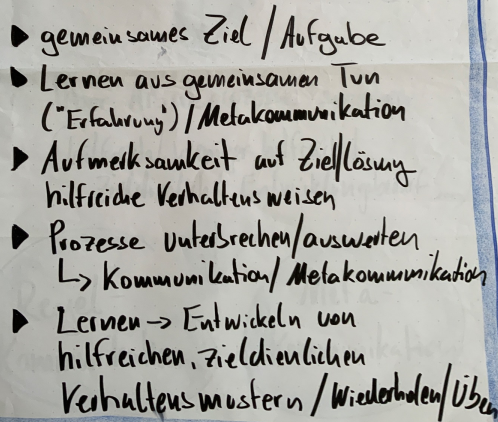 ▶ gemeinsames Ziel / Aufgabe
▶ Lernen aus gemeinsamen Tun
("Erfahrung") / Metakommunikation
▶ Aufmerksamkeit auf Ziel/lösung
hilfreiche Verhaltensweisen
▶ Prozesse unterbrechen/auswerten
↳ Kommunikation / Metakommunikation
▶ Lernen → Entwickeln von
hilfreichen, zieldienlichen
Verhaltensmustern / Wiederholen / Üben